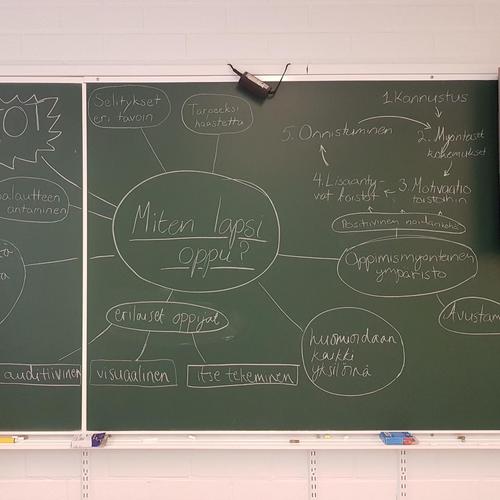 Selitykset
eri tavoin
Tarpeeksi
haastetta
1. Kannustus
2. Myönteiset
kokemukset
3. Motivaatio
toistoihin
4. Lisäänty-
vät toistot
5. Onnistuminen
Positiivinen noidankehä
palautteen
antaminen
Miten lapsi
oppii?
Oppimismyönteinen
ympäristö
Avustam
erilaiset oppijat
huomioidaan
kaikki
yksilöinä
auditiivinen
visuaalinen
itse tekeminen